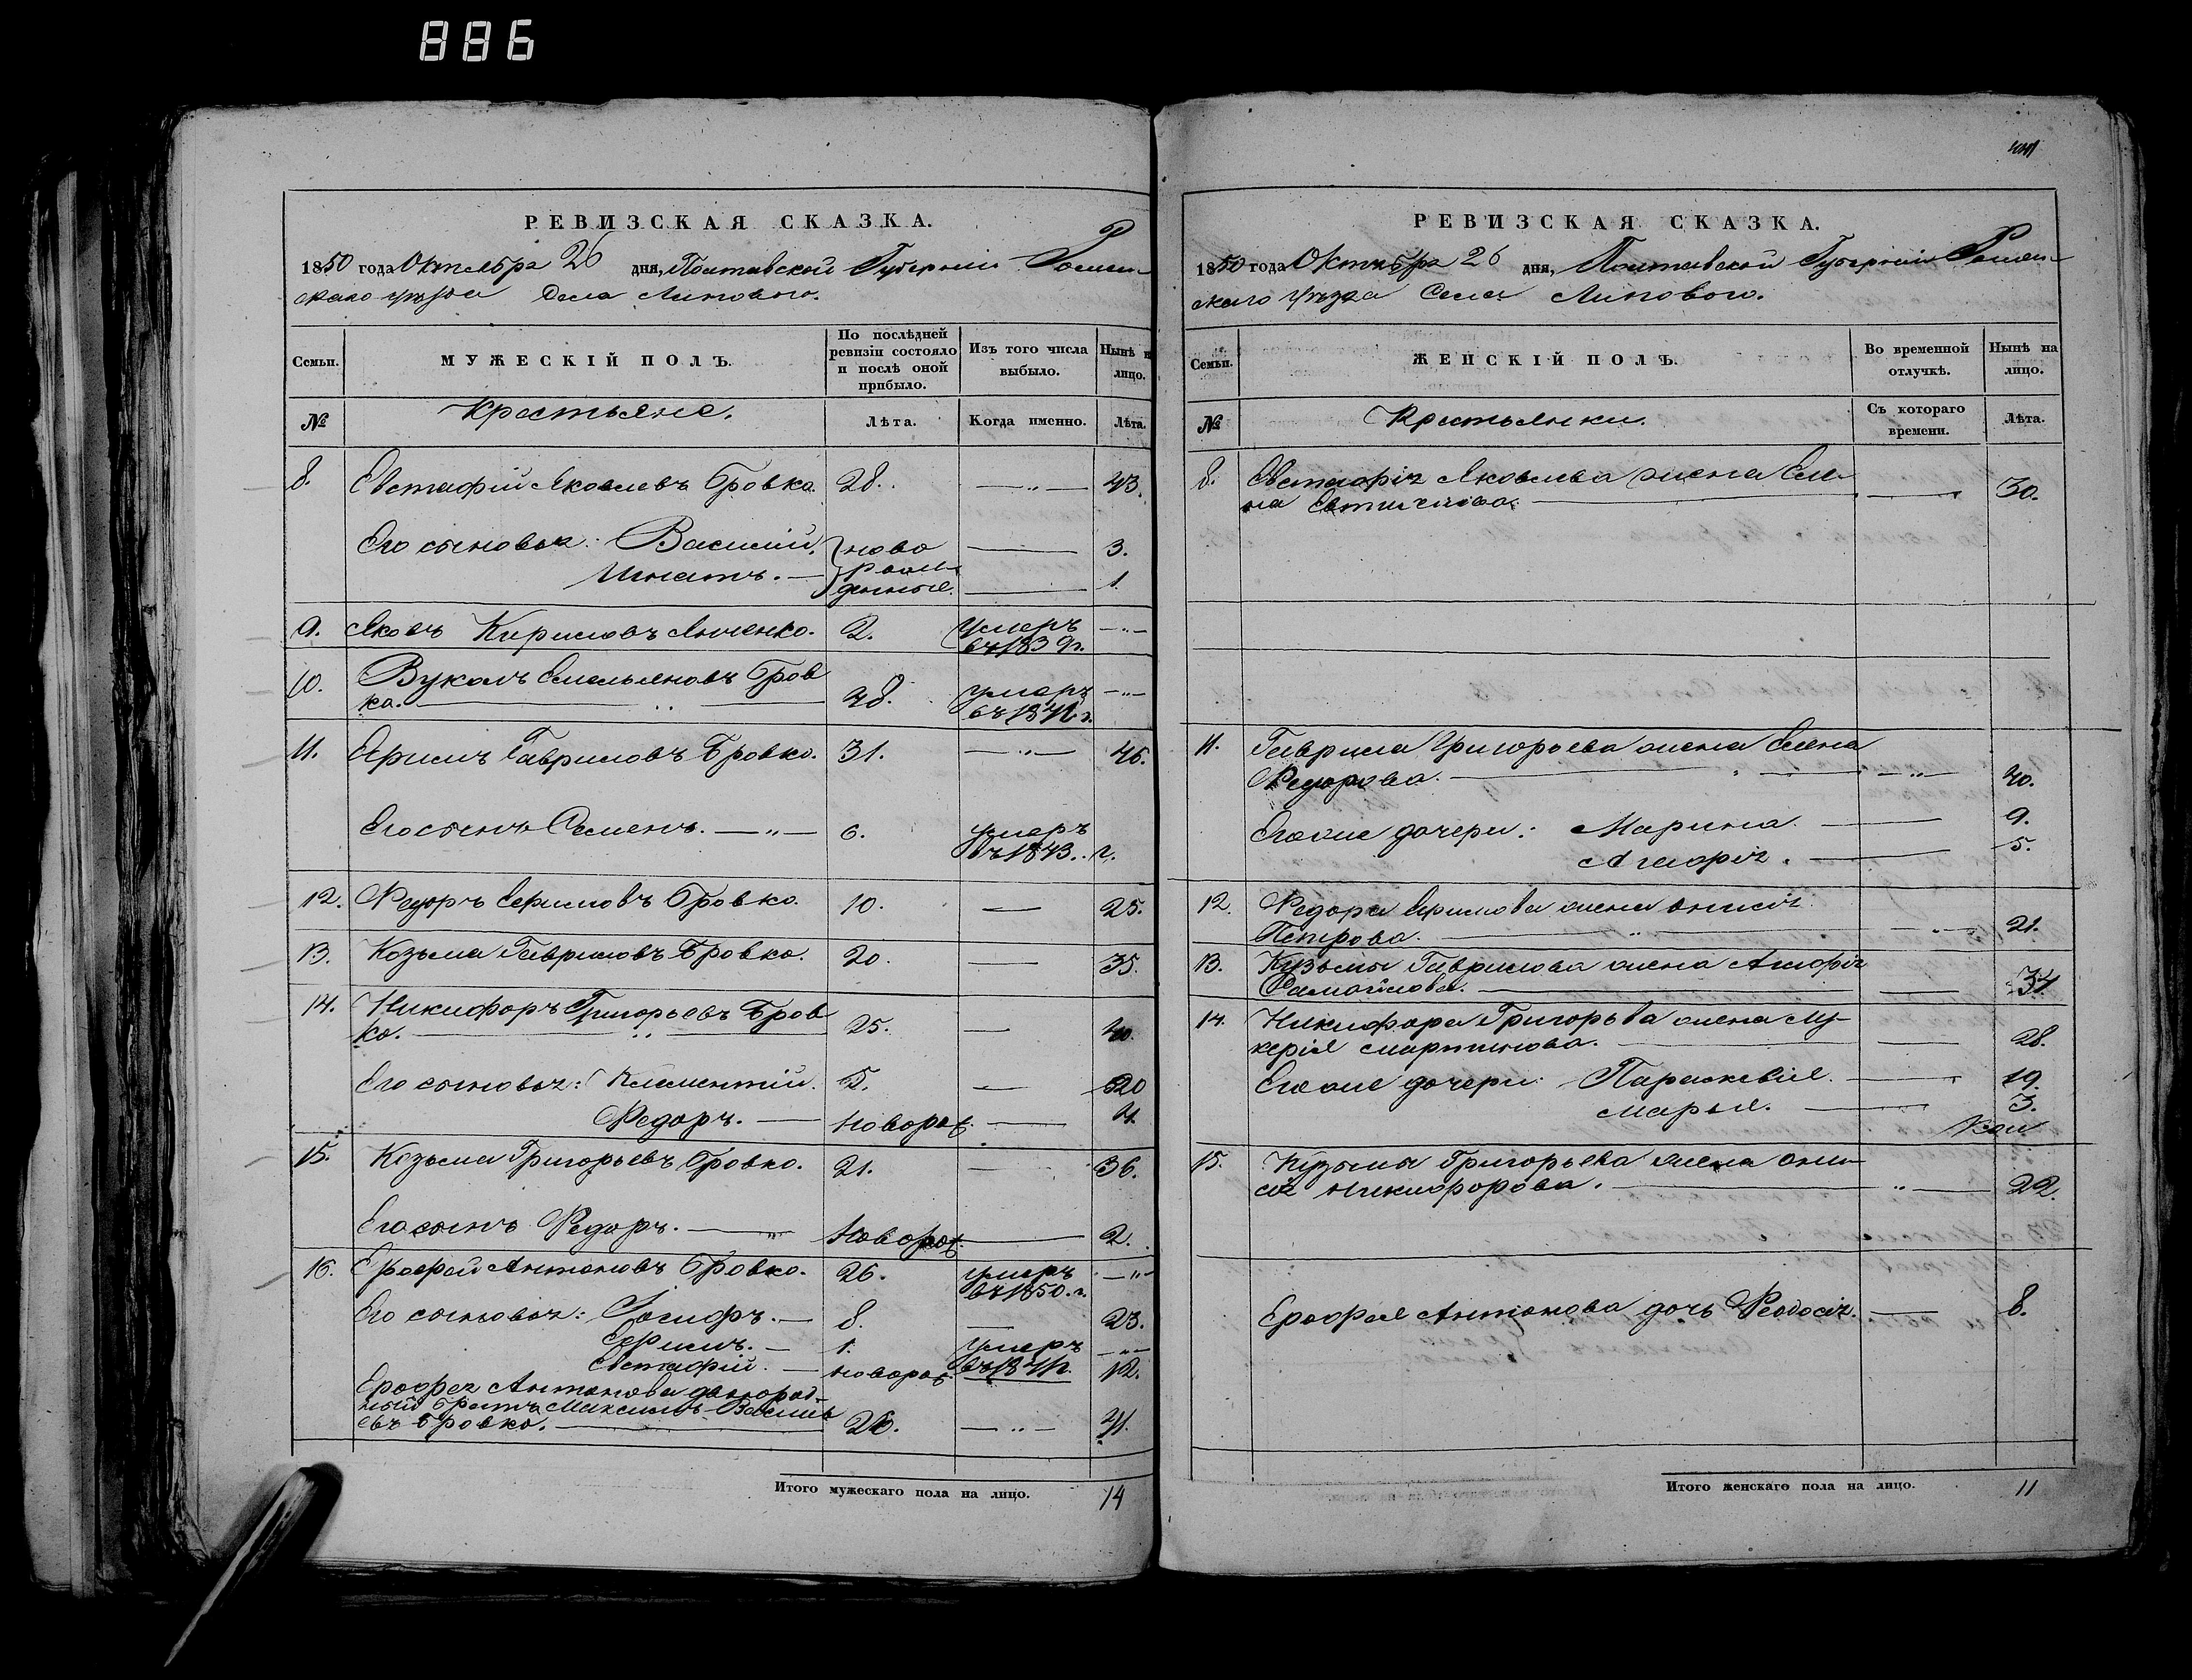 886
РЕВИЗСКАЯ СКАЗКА.
1850 года Октября 26 дня, Полтавской Губерніи Ромен-
скаго уѣзда Села Липоваго.
Семьи.
МУЖЕСКІЙ ПОЛЪ.
По послѣдней
ревизіи состояло
и послѣ оной
прибыло.
Изъ того числа
выбыло.
Нынѣ н
лицо.
№
Крестьяне.
Лѣта.
Когда именно.
Лѣта.
8. Евстафій Яковлевъ Бровко. 28. —"— 43.
Его сыновья: Василій. ново — 3.
Игнатъ. — рож-
денные. — 1.
9. Яковъ Кириловъ Яненко. 2. умеръ —"—
въ 1839 г.
10. Вуколъ Емельяновъ Бров
ко. — 48. умеръ —"—
въ 1841 г.
11. Ефимъ Гавриловъ Бровко. 31. —"— 46.
Его сынъ Семенъ. —"— 6. умеръ
въ 1843. г.
12. Федоръ Ефимовъ Бровко. 10. — 25.
13. Козьма Гавриловъ Бровко. 20. — 35.
14. Никифоръ Григорьевъ Бров
ко. — 25. — 40.
Его сыновья: Климентій. 5. — 20
Федоръ. — новорож. — 4.
15. Козьма Григорьевъ Бровко. 21. — 36.
Его сынъ Федоръ. — Новорож. — 2.
16. Ерофей Антоновъ Бровко. 26. умеръ —"—
въ 1850. г.
Его сыновья: Іосифъ. — 8. — 23.
Ефимъ. — 1. умеръ —"—
Евстафій. — новорож. въ 1841 г. 12.
Ерофея Антонова двоюрод-
ный братъ Максимъ Василь
евъ Бровко. — 26. —"— 41.
Итого мужескаго пола на лицо. 14
РЕВИЗСКАЯ СКАЗКА.
1850 года Октября 26 дня, Полтавской Губерніи Ромен-
скаго уѣзда Села Липоваго.
Семьи.
ЖЕНСКІЙ ПОЛЪ.
Во временной
отлучкѣ.
Нынѣ на
лицо.
№
Крестьянки.
Съ котораго
времени.
Лѣта.
8. Евстафія Яковлева жена Еле-
на — 30.
11. Гаврила Григорьева жена Елена
Федорова. —"— 40.
Его же дочери: Марина. — 9.
Агафія. — 5.
12. Федора Ефимова жена Онисія
Петрова. —"— 21.
13. Кузьмы Гаврилова жена Агафія
Самойлова. — 34.
14. Никифора Григорьева жена Лу-
керія Мартинова. — 28.
Его же дочери: Параскевія. — 19.
Марья. — 3.
15. Кузьмы Григорьева жена Они-
сія Никифорова. —"— 22.
Ерофея Антонова дочь Феодосія. — 8.
Итого женскаго пола на лицо. 11